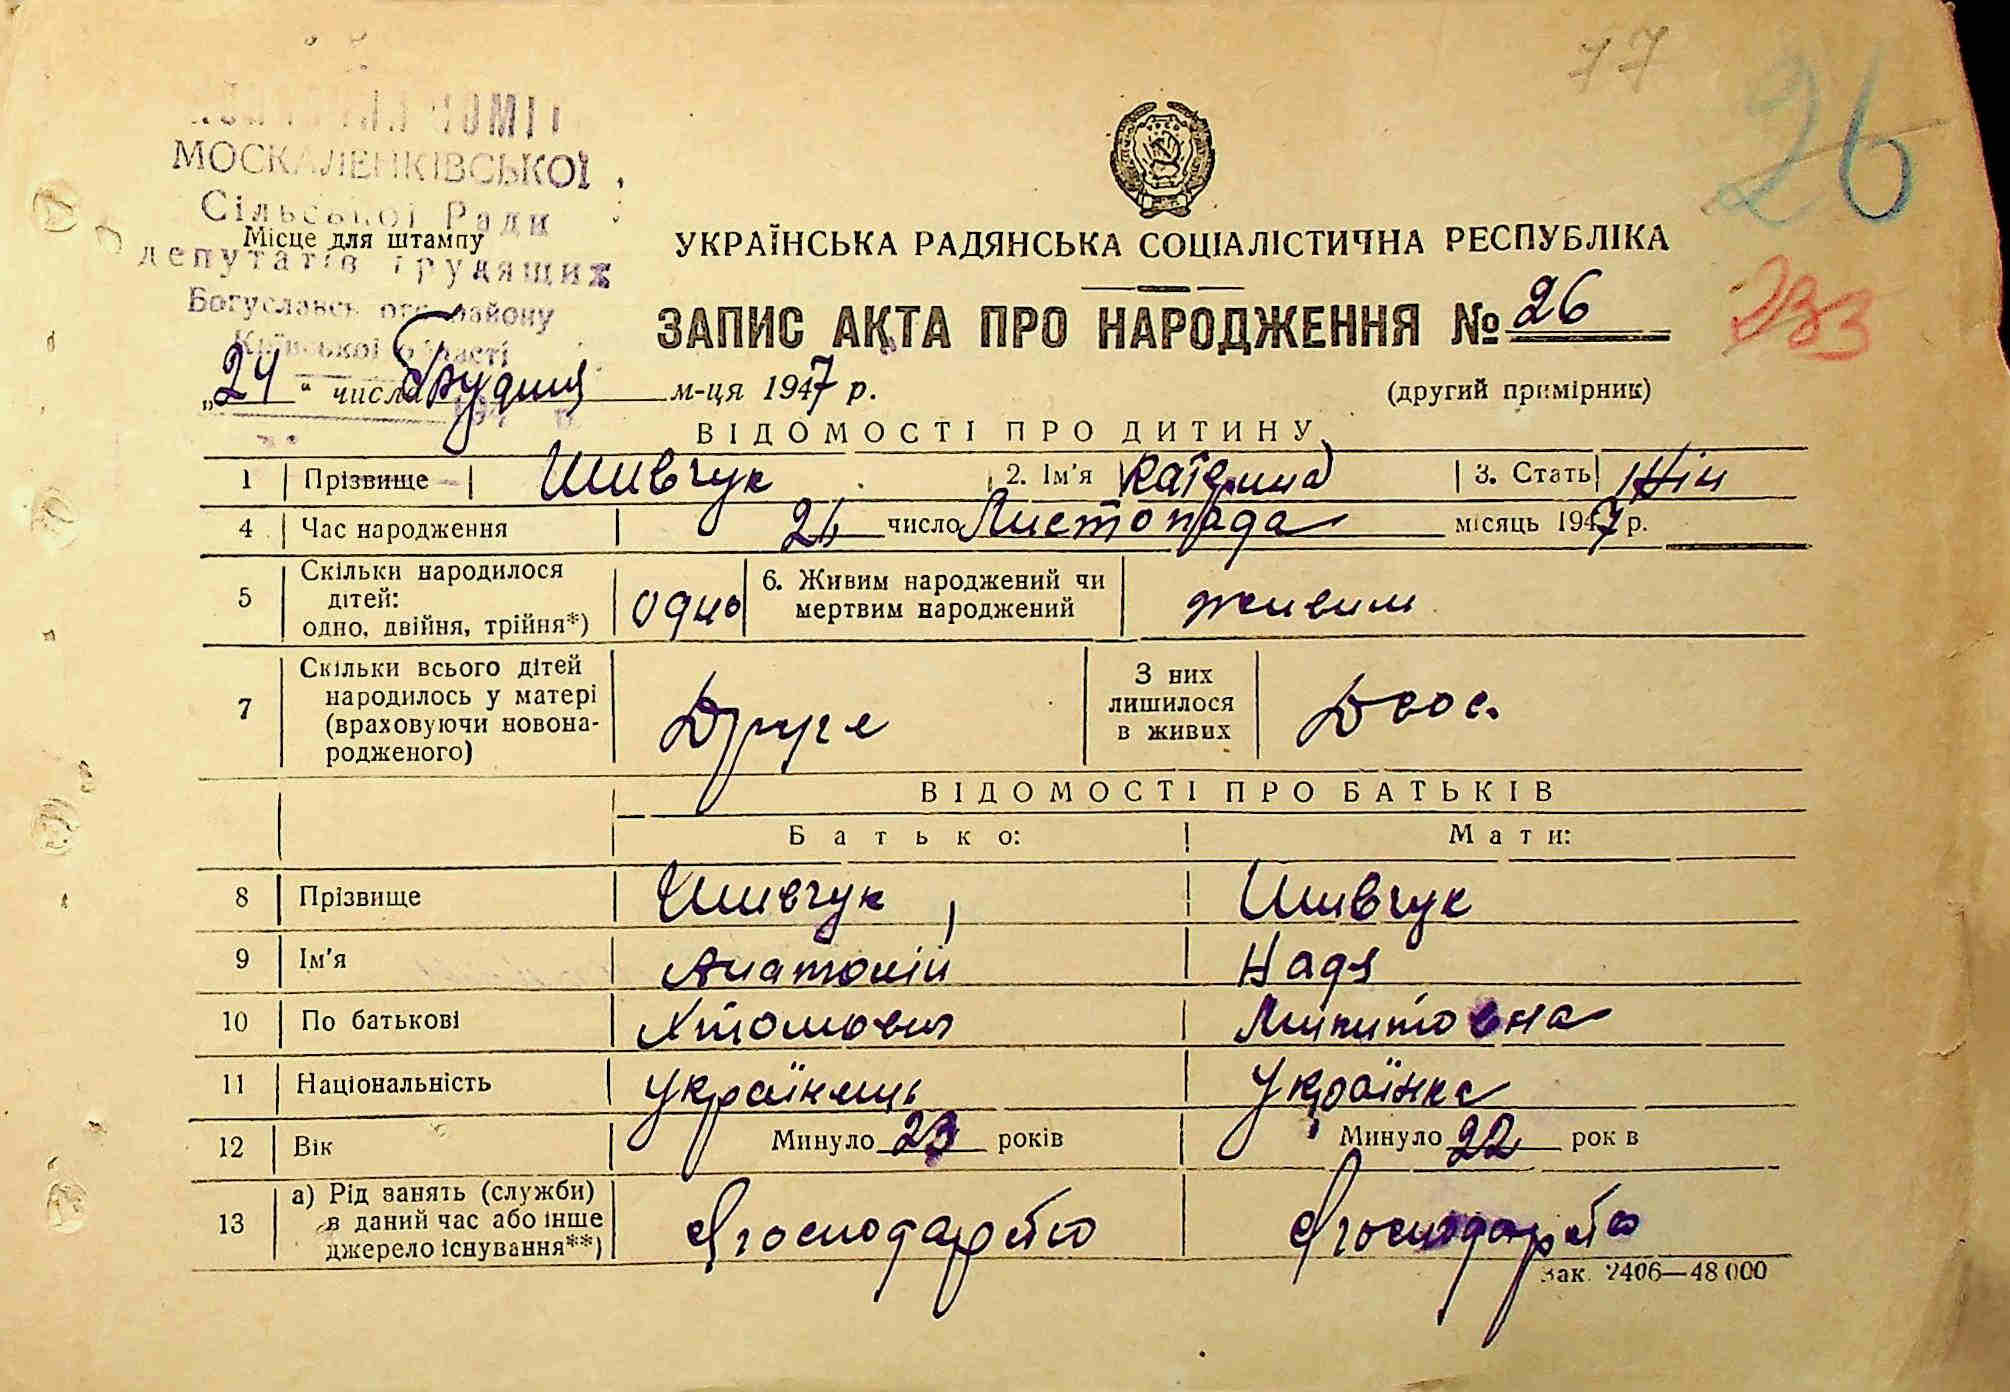 77
26
МОСКАЛЕНКІВСЬКОЇ
Сільської Ради
Місце для штампу
депутатів трудящих
Богуславського району
Київської області
УКРАЇНСЬКА РАДЯНСЬКА СОЦІАЛІСТИЧНА РЕСПУБЛІКА
ЗАПИС АКТА ПРО НАРОДЖЕННЯ № 26
233
„24“ числа Грудня м-ця 1947 р.
(другий примірник)
ВІДОМОСТІ ПРО ДИТИНУ
1 Прізвище Шивчук 2. Ім'я Катерина 3. Стать Жін
4 Час народження число Листопада місяць 1947 р.
5 Скільки народилося дітей: одно, двійня, трійня*) одно 6. Живим народжений чи мертвим народжений живим
7 Скільки всього дітей народилось у матері (враховуючи новонародженого) Друге З них лишилося в живих Двоє.
ВІДОМОСТІ ПРО БАТЬКІВ
Батько: Мати:
8 Прізвище Шивчук Шивчук
9 Ім'я Анатолій Надя
10 По батькові
11 Національність Українець Українка
12 Вік Минуло 23 років Минуло 22 рок в
13 а) Рід занять (служби) в даний час або інше джерело існування**)
Зак. 2406—48 000